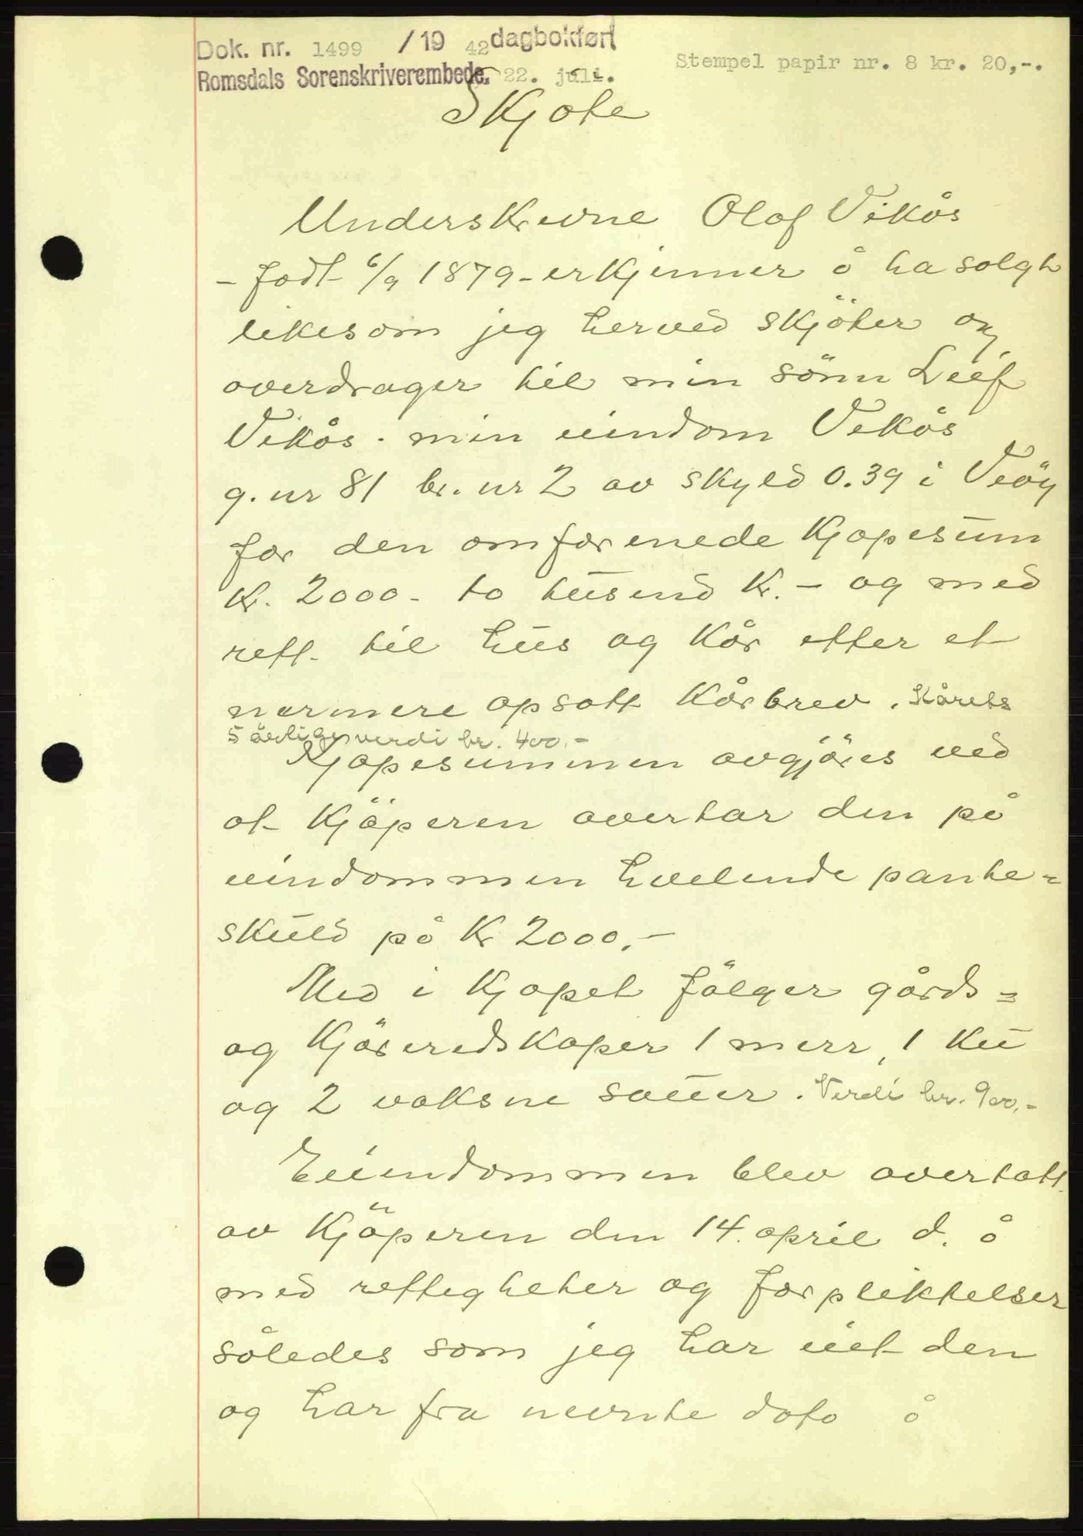 Dok. nr. 1499 / 19 42 dagbokført
Stempel papir nr. 8 kr. 20,-.
Romsdals Sorenskriverembede. 22. juli.
Skjøte
Underskrevne Olaf Vikås
- født 6/9 1879 - erkjenner å ha solgt
likesom jeg herved skjöter og
overdrager til min sönn Leif
Vikås. min eiendom Vikås
g. nr 81 br. nr 2 av skyld 0.39 i Veöy
for den omforenede Kjøpesum
Kr. 2000.- to tusend Kr.- og med
rett til hus og Kår etter et
nærmere opsatt Kårbrev. Kårets
5 årlige verdi kr. 400.-
Kjøpesummen avgjöres ved
at Kjöperen overtar den på
eiendommen hvilende pante=
skuld på Kr 2000.-
Med i Kjøpet fölger gårds=
og Kjöreredskaper 1 merr, 1 Ku
og 2 voksne sauer. Verdi kr. 900.-
Eiendommen blev overtatt
av Kjöperen den 14. april d. å
med rettigheter og forpliktelser
således som jeg har eiet den
og har fra nevnte dato å